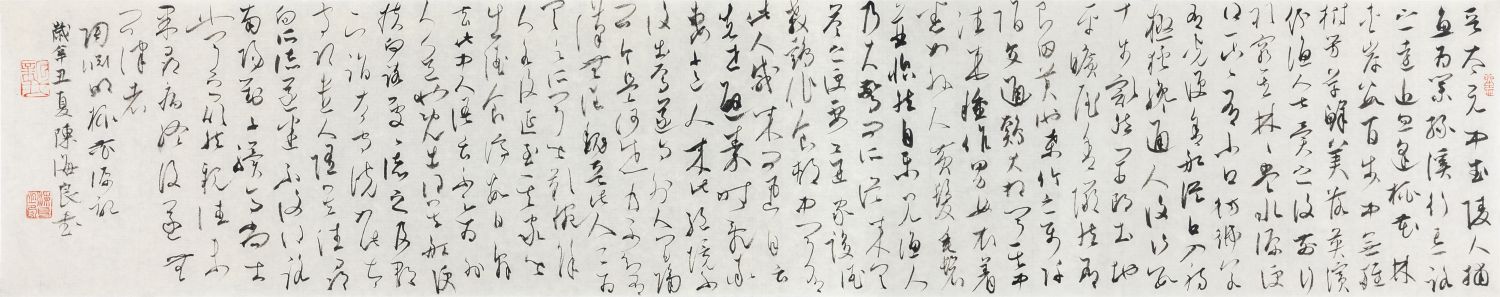 晉太元中武陵人捕
魚為業緣溪行忘路
之遠近忽逢桃花林
夾岸數百步中無雜
樹芳草鮮美落英繽
紛漁人甚異之復前行
欲窮其林林盡水源便
得一山山有小口彷彿若
有光便舍船從口入初
極狹纔通人復行數
十步豁然開朗土地
平曠屋舍儼然有
良田美池桑竹之屬阡
陌交通雞犬相聞其中
往來種作男女衣著
悉如外人黃髮垂髫
並怡然自樂見漁人
乃大驚問所從來具
答之便要還家設酒
殺雞作食村中聞有
此人咸來問訊自云
先世避秦時亂率
妻子邑人來此絕境不
復出焉遂與外人間隔
問今是何世乃不知有
漢無論魏晉此人一一為
具言所聞皆歎惋餘
人各復延至其家皆
出酒食停數日辭
去此中人語云不足為外
人道也既出得其船便
扶向路處處誌之及郡
下詣太守說如此太
守即遣人隨其往尋
向所誌遂迷不復得路
南陽劉子驥高尚士
也聞之欣然規往未
果尋病終後遂無
問津者
陶淵明桃花源記
歲辛丑夏陳海良書